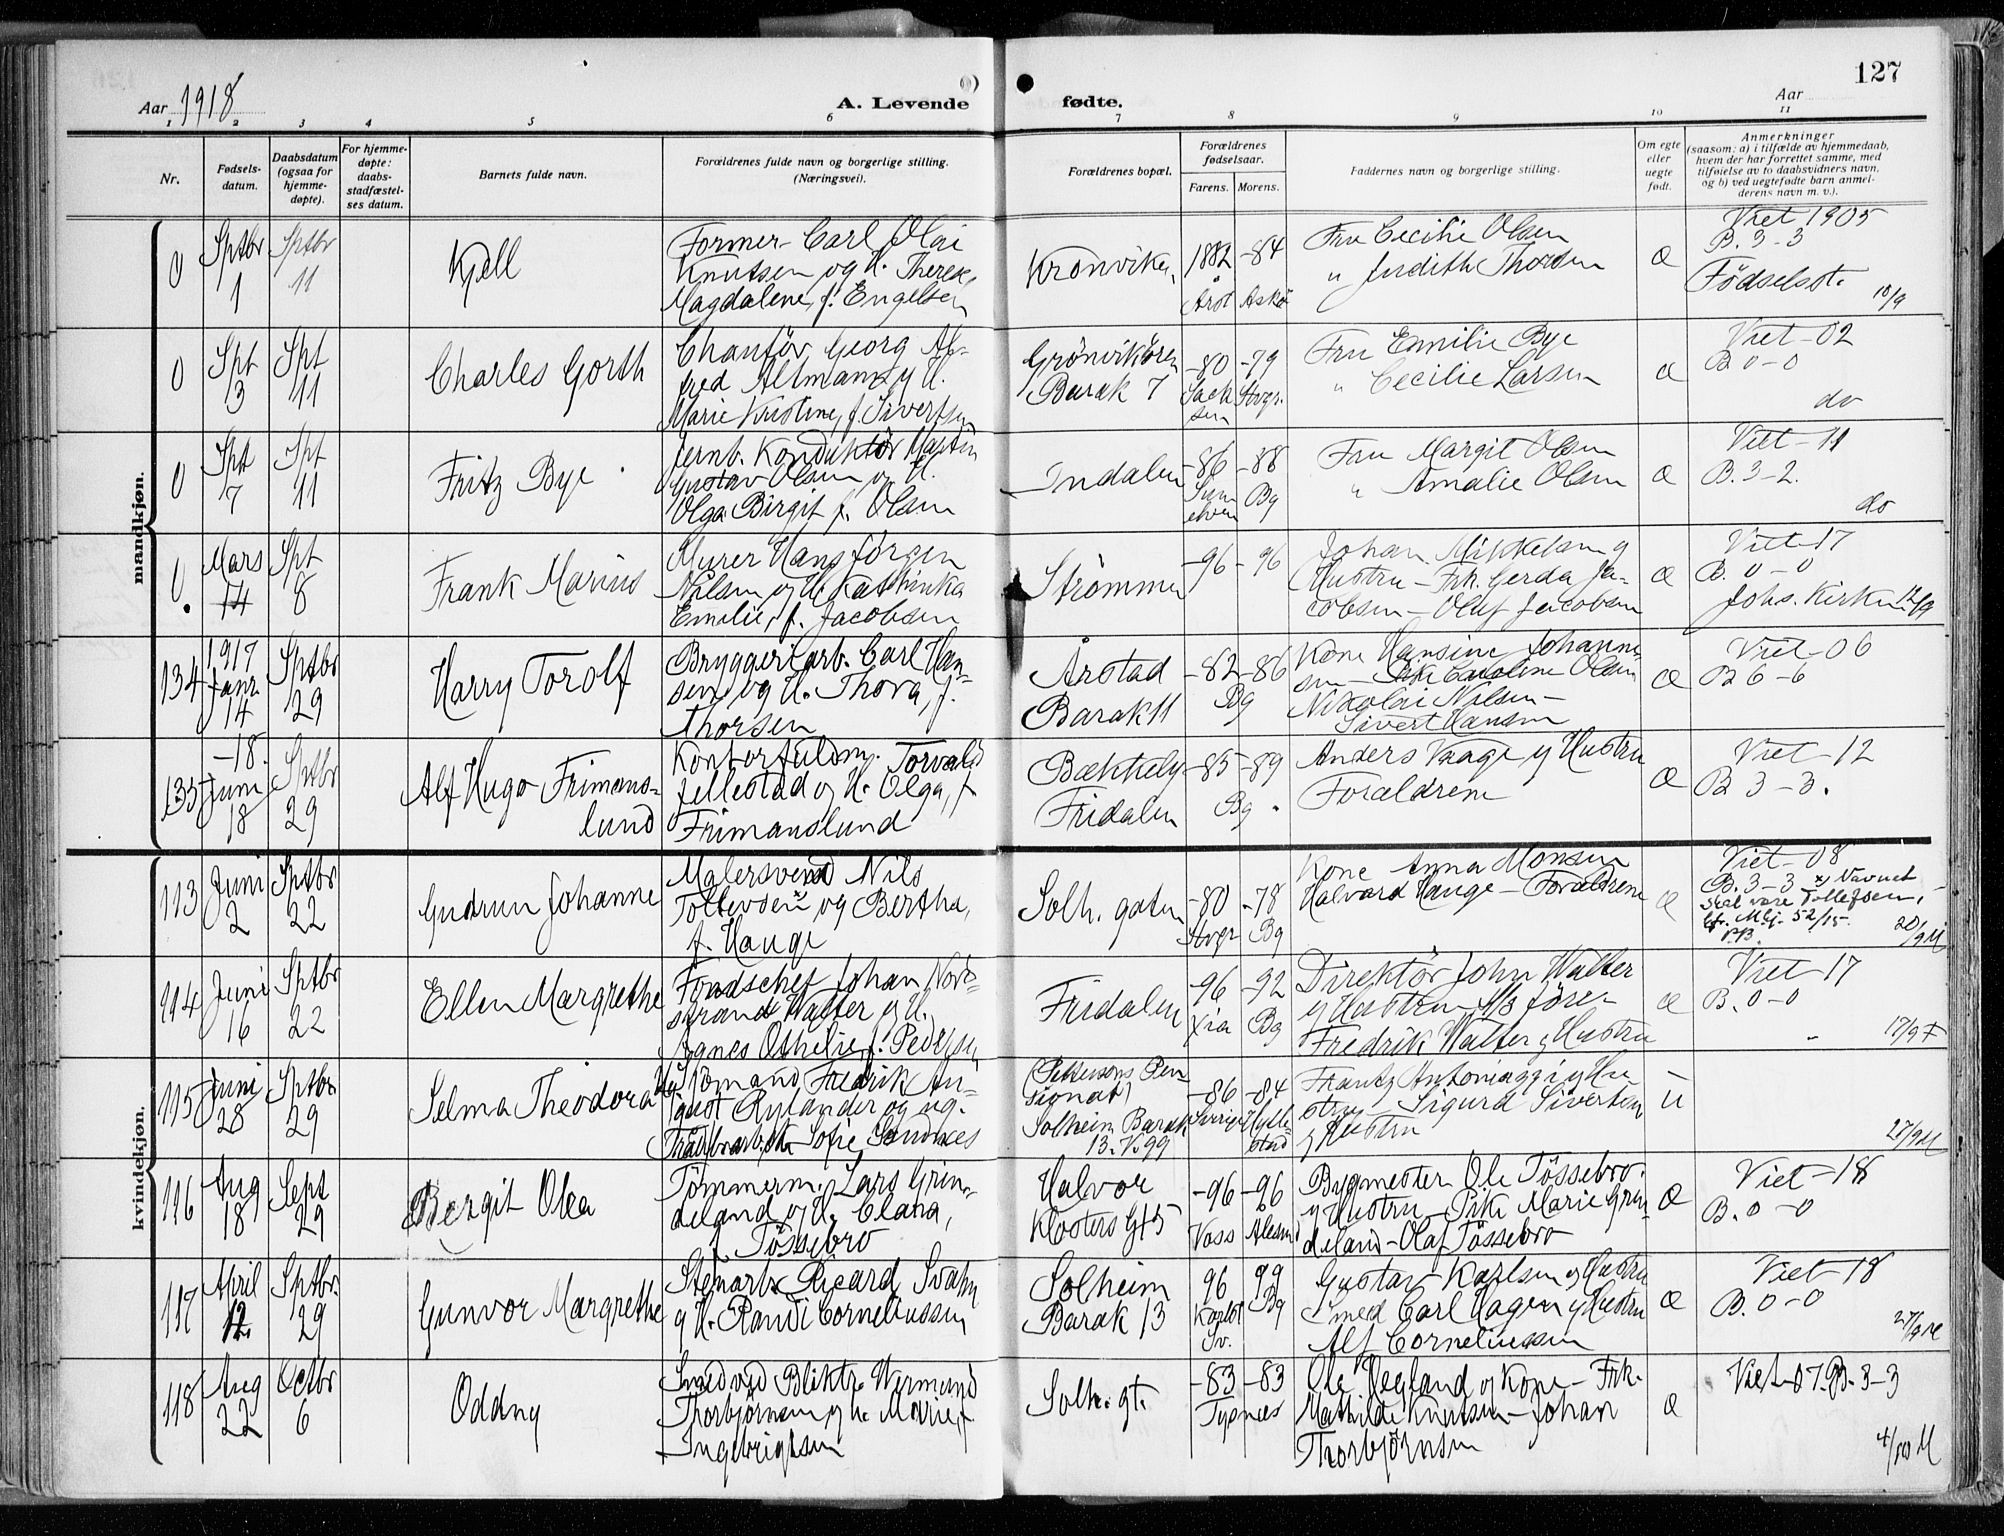 127
Aar 1918
A. Levende
fødte.
Aar
1 2 3 4 5 6 7 8 9 10 11
Nr.
Fødsels-
datum.
Daabsdatum
(ogsaa for
hjemme-
døpte).
For hjemme-
døpte:
daabs-
stadfæstel-
ses datum.
Barnets fulde navn.
Forældrenes fulde navn og borgerlige stilling.
(Næringsvei).
Forældrenes bopæl.
Forældrenes
fødselsaar.
Farens. Morens.
Faddernes navn og borgerlige stilling.
Om egte
eller
uegte
født.
Anmerkninger
(saasom: a) i tilfælde av hjemmedaab,
hvem der har forrettet samme, med
tilføielse av to daabsvidners navn,
og b) ved uegtefødte barn anmel-
derens navn m. v.).
mandkjøn.
0
Sptbr
1
Sptbr
11
Kjell
Former Carl Olai
Knutsen og H. Therese
Magdalene, f. Engelsen
Kronviken
1882 -84
Årst Askø
Fru Cecilie Olsen
" Judith Thorsen
æ
Viet 1905
B. 3-3
Fødselsat.
10/9
0
Spt
3
Spt
11
Charles Gorth
Chauför Georg Al-
fred Altmann og H.
Marie Kristine, f. Sivertsen
Grønvikøren
Barak 7
-80 -79
Sach
sen
Stvgr.
Fru Emilie Bye
" Cecilie Larsen
æ
Viet -02
B 0-0
do
0
Spt
7
Spt
11
Fritz Bye
Jernb. Konduktör Martin
Gustav Olsen og H.
Olga Birgit f. Olsen
Indalen
-86 -88
Bg
Fru Margit Olsen
" Amalie Olsen
æ
Viet -11
B. 3-2.
do
0
Mars
14
Spt
8
Frank Marius
Murer Hans Jørgen
Nilsen og H. Kathinka
Emilie, f. Jacobsen
Strømmen
-96 -96
Johan Mikkelsen og
Hustru - Frk. Gerda Ja-
cobsen - Oluf Jacobsen
æ
Viet -17
B. 0-0
Johs. Kirken 12/9
134
1917
Janr.
14
Sptbr
29
Harry Torolf
Bryggeriarb. Carl Han-
sen og H. Thora, f.
Thorsen
Årstad
Barak 11
-82 -86
Bg
Kone Hansine Johanne-
sen - Pike Caroline Olsen
Nikolai Nilsen -
Sivert Hansen
æ
Viet -06
B 6-6
135
-18.
Juni
18
Sptbr
29
Alf Hugo Frimans-
lund
Kontorfuldm. Torvald
Jellestad og H. Olga, f.
Frimanslund
Bækkely
Fridalen
-85 -89
Bg
Anders Vaage og Hustru
Forældrene
æ
Viet -12
B 3-3.
kvindekjøn.
113
Juni
2
Sptbr
22
Gudrun Johanne
Malersvend Nils
Tollevsen x og Bertha,
f. Hauge
Solh. gaten
-80 -78
Stvgr Bg
Kone Anna Monsen
Halvard Hauge - Forældrene
æ
Viet -08
B. 3-3 x) Navnet
skal være Tollefsen,
52/15.
20/9 M
114
Juni
16
Sptbr
22
Ellen Margrethe
Fondschef Johan Nord-
strand Walter og H.
Agnes Othelie f. Pedersen
Fridalen
-96 -92
Xia Bg
Direktør John Walter
og Hustru
Fredrik Walter og Hustru
æ
Viet -17
B. 0-0
17/9 F
115
Juni
28
Sptbr
29
Selma Theodora
Sjömand Fredrik Au-
gust Rylander og ug.
Sofie Sandnes
(Pettersons Pen-
sionat)
Solheim Barak
13. V. 99
-86 -84
Sverige Hylle-
stad
Frantz Antoniaggi og Hu-
stru - Sigurd Sivertsen
og Hustru
u
27/9 M
116
Aug
18
Sept
29
Bergit Olea
Tömmerm. Lars Grin-
deland og H. Clara,
f. Tössebro
Halvor
Klosters Gt 5
-96 -96
Voss Alesund
Bygmester Ole Tössebro
og Hustru - Pike Marie Grin-
deland - Olaf Tössebro
æ
Viet -18
B. 0-0
117
April
12.
Sptbr.
29
Gunvor Margrethe
Stenarb. Ricard Svahn
og H. Randi Corneliussen
Solheim
Barak 13
96 99
Sv.
Bg
Gustav Karlsen og Hustru
Smed Carl Hagen og Hustru
Alf Corneliussen
æ
Viet -18
B. 0-0
27/9 M
118
Aug
22
Octbr
6
Oddny
Smed ved Bliktr. Wermund
Thorbjørnsen og H. Marie, f.
Ingebrigtsen
Solh. gt.
-83 -83
Tysnes
Ole Vegland og Kone - Frk.
Mathilde Knutsen - Johan
Thorbjørnsen
æ
Viet -07. B. 3-3
4/10 M